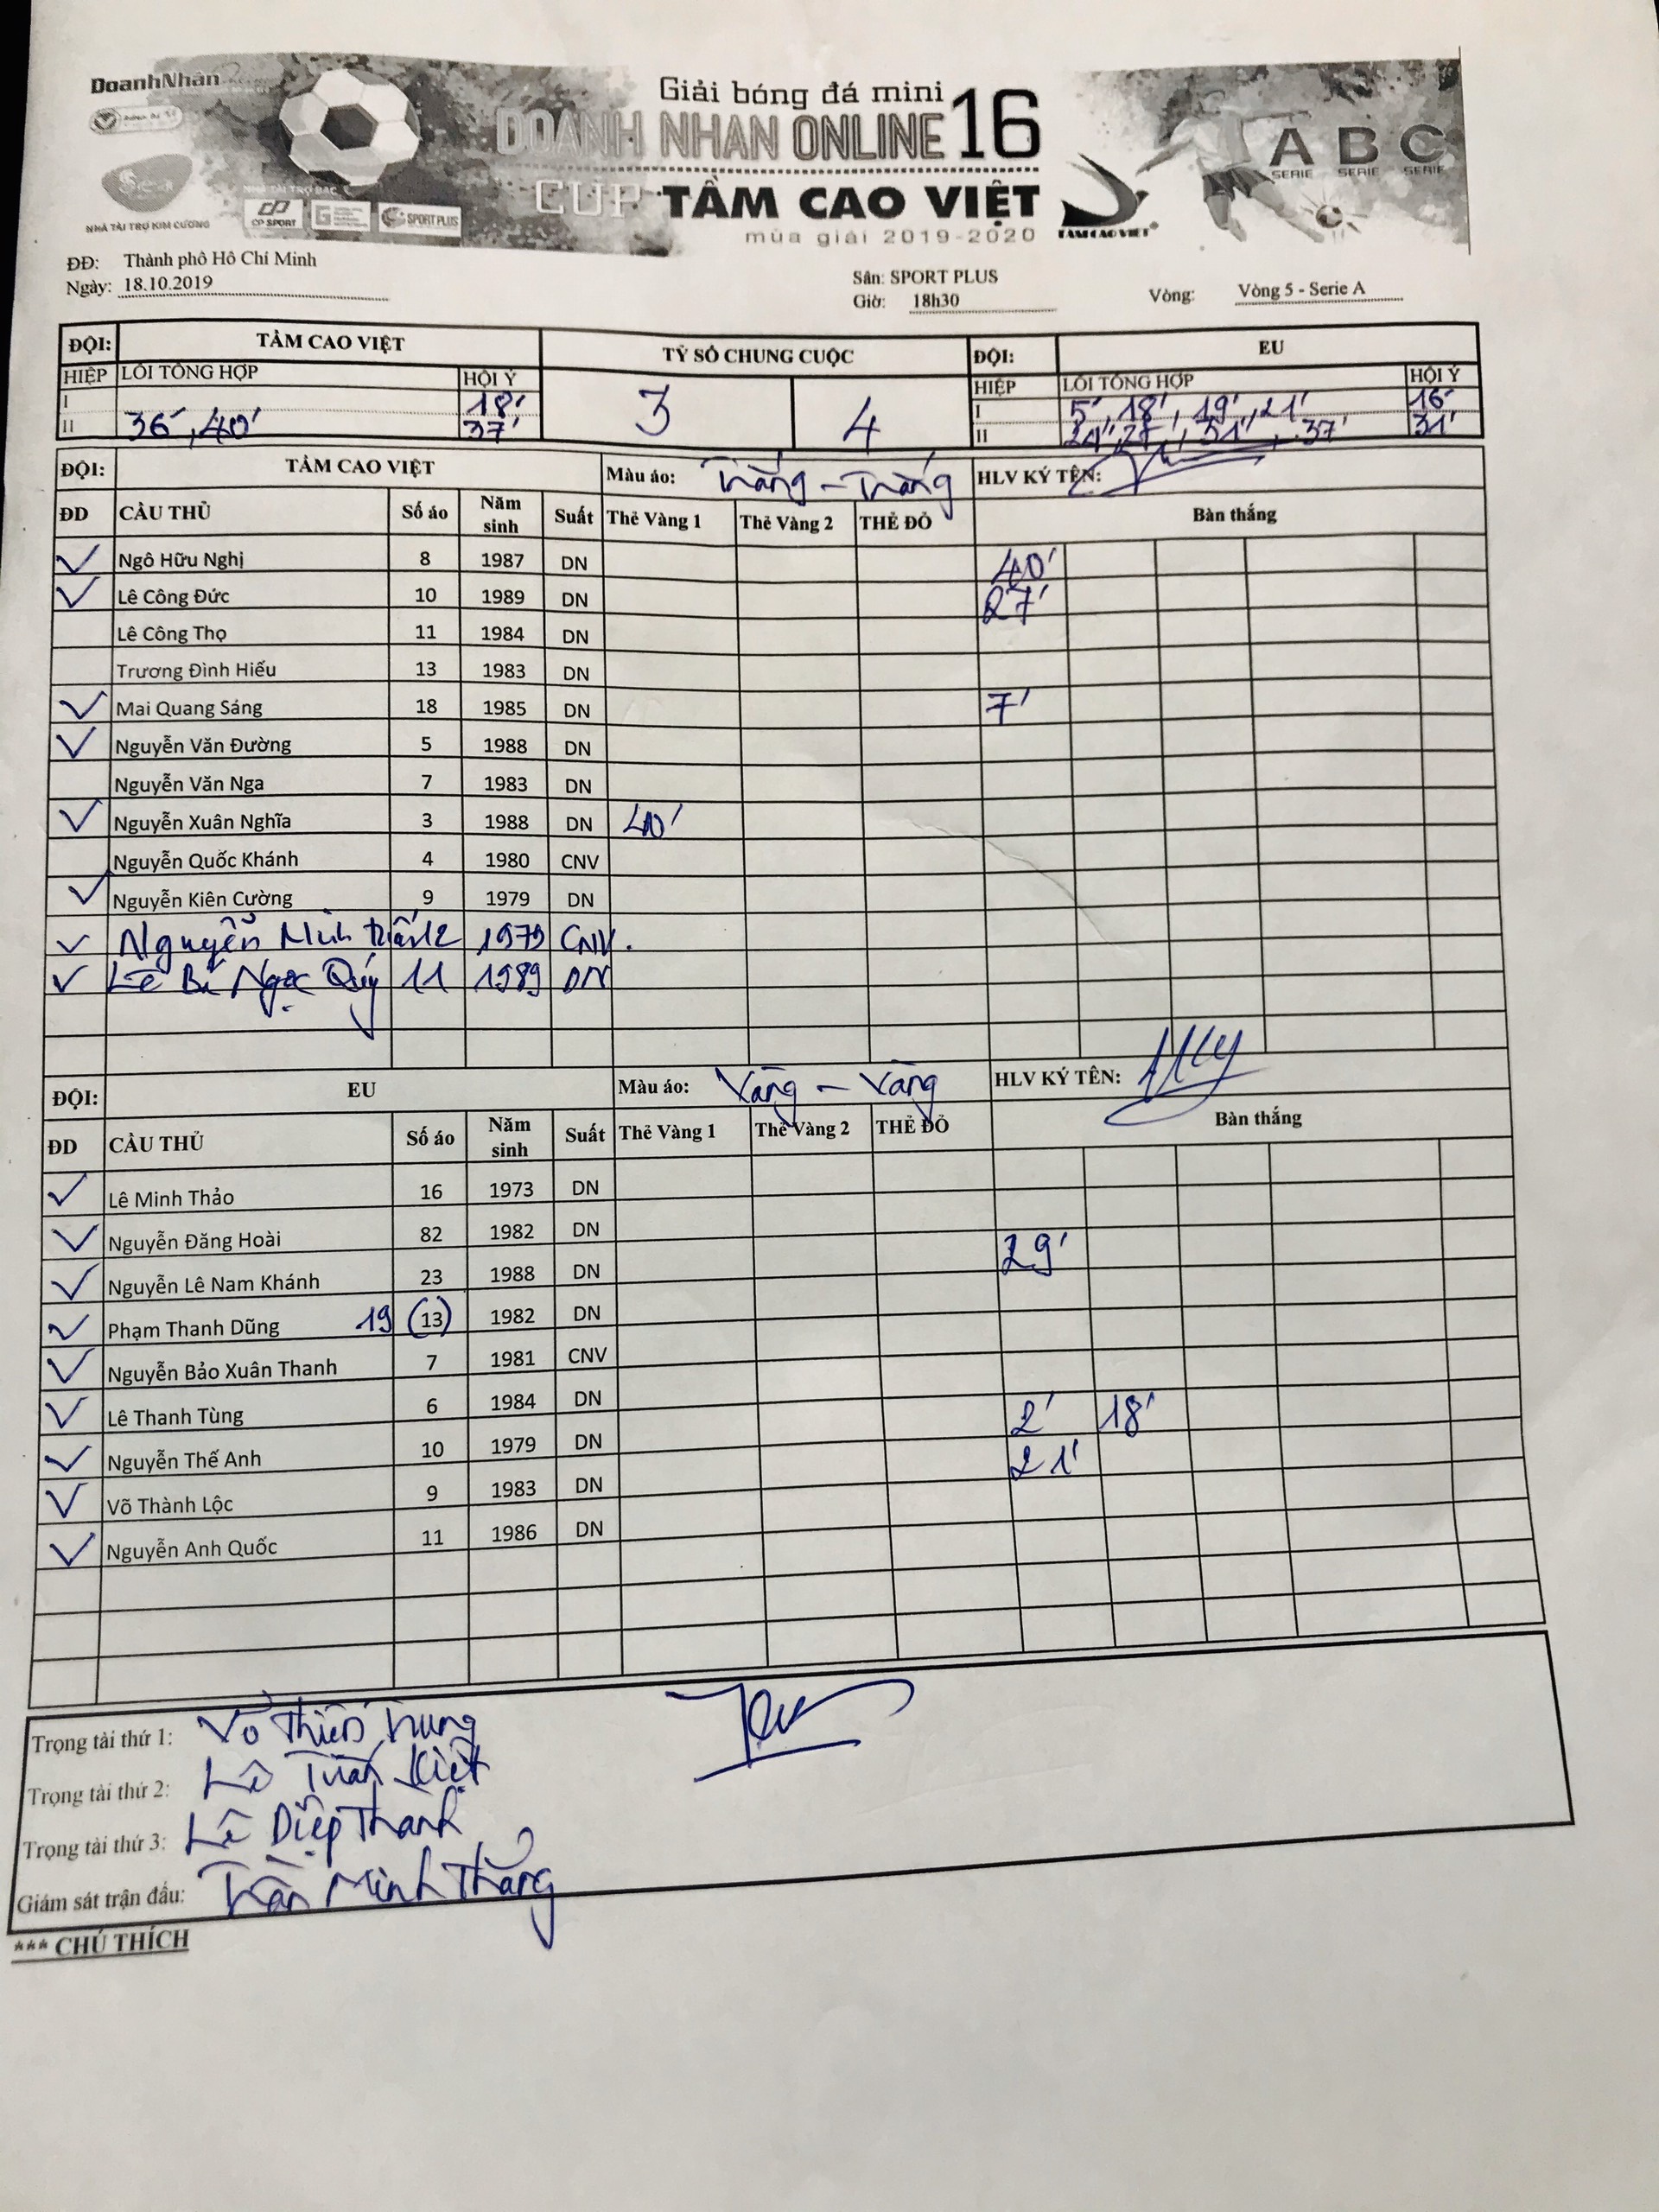 DoanhNhân
Sea
NHÀ TÀI TRỢ KIM CƯƠNG
NHÀ TÀI TRỢ BẠC
CP SPORT
SPORT PLUS
Giải bóng đá mini
DOANH NHAN ONLINE 16
CUP TẦM CAO VIỆT
mùa giải 2019-2020
TAM CAO VIET
A B C
SERIE SERIE SERIE
ĐĐ: Thành phố Hồ Chí Minh
Ngày: 18.10.2019
Sân: SPORT PLUS
Giờ: 18h30
Vòng: Vòng 5 - Serie A
ĐỘI: TẦM CAO VIỆT TỶ SỐ CHUNG CUỘC ĐỘI: EU
HIỆP LỖI TỔNG HỢP HỘI Ý 3 4 HIỆP LỖI TỔNG HỢP HỘI Ý
I 18' I 5', 18', 19', 21' 16'
II 36', 40' 37' II 24', 27', 31', 37' 31'
ĐỘI: TẦM CAO VIỆT Màu áo: Trắng - Trắng HLV KÝ TÊN:
ĐD CẦU THỦ Số áo Năm sinh Suất Thẻ Vàng 1 Thẻ Vàng 2 THẺ ĐỎ Bàn thắng
✓ Ngô Hữu Nghị 8 1987 DN 40'
✓ Lê Công Đức 10 1989 DN 27'
Lê Công Thọ 11 1984 DN
Trương Đình Hiếu 13 1983 DN
✓ Mai Quang Sáng 18 1985 DN 7'
✓ Nguyễn Văn Đường 5 1988 DN
Nguyễn Văn Nga 7 1983 DN
✓ Nguyễn Xuân Nghĩa 3 1988 DN 40'
Nguyễn Quốc Khánh 4 1980 CNV
✓ Nguyễn Kiên Cường 9 1979 DN
✓ Nguyễn Minh 12 1979 CNV.
✓ Lê Bá Ngọc Quý 11 1989 DN
ĐỘI: EU Màu áo: Vàng - Vàng HLV KÝ TÊN:
ĐD CẦU THỦ Số áo Năm sinh Suất Thẻ Vàng 1 Thẻ Vàng 2 THẺ ĐỎ Bàn thắng
✓ Lê Minh Thảo 16 1973 DN
✓ Nguyễn Đăng Hoài 82 1982 DN 29'
✓ Nguyễn Lê Nam Khánh 23 1988 DN
✓ Phạm Thanh Dũng 19 (13) 1982 DN
✓ Nguyễn Bảo Xuân Thanh 7 1981 CNV
✓ Lê Thanh Tùng 6 1984 DN 2' 18'
✓ Nguyễn Thế Anh 10 1979 DN 21'
✓ Võ Thành Lộc 9 1983 DN
✓ Nguyễn Anh Quốc 11 1986 DN
Trọng tài thứ 1: Võ Thiên Trung
Trọng tài thứ 2: Lê Tuấn Kiệt
Trọng tài thứ 3: Lê Diệp Thanh
Giám sát trận đấu: Trần Minh Thắng
*** CHÚ THÍCH